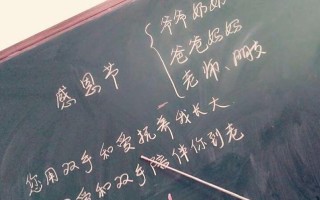 感恩节
爷爷奶奶
爸爸妈妈
老师、朋友
您用双手和爱抚养我长大
爱和双手陪伴你到老